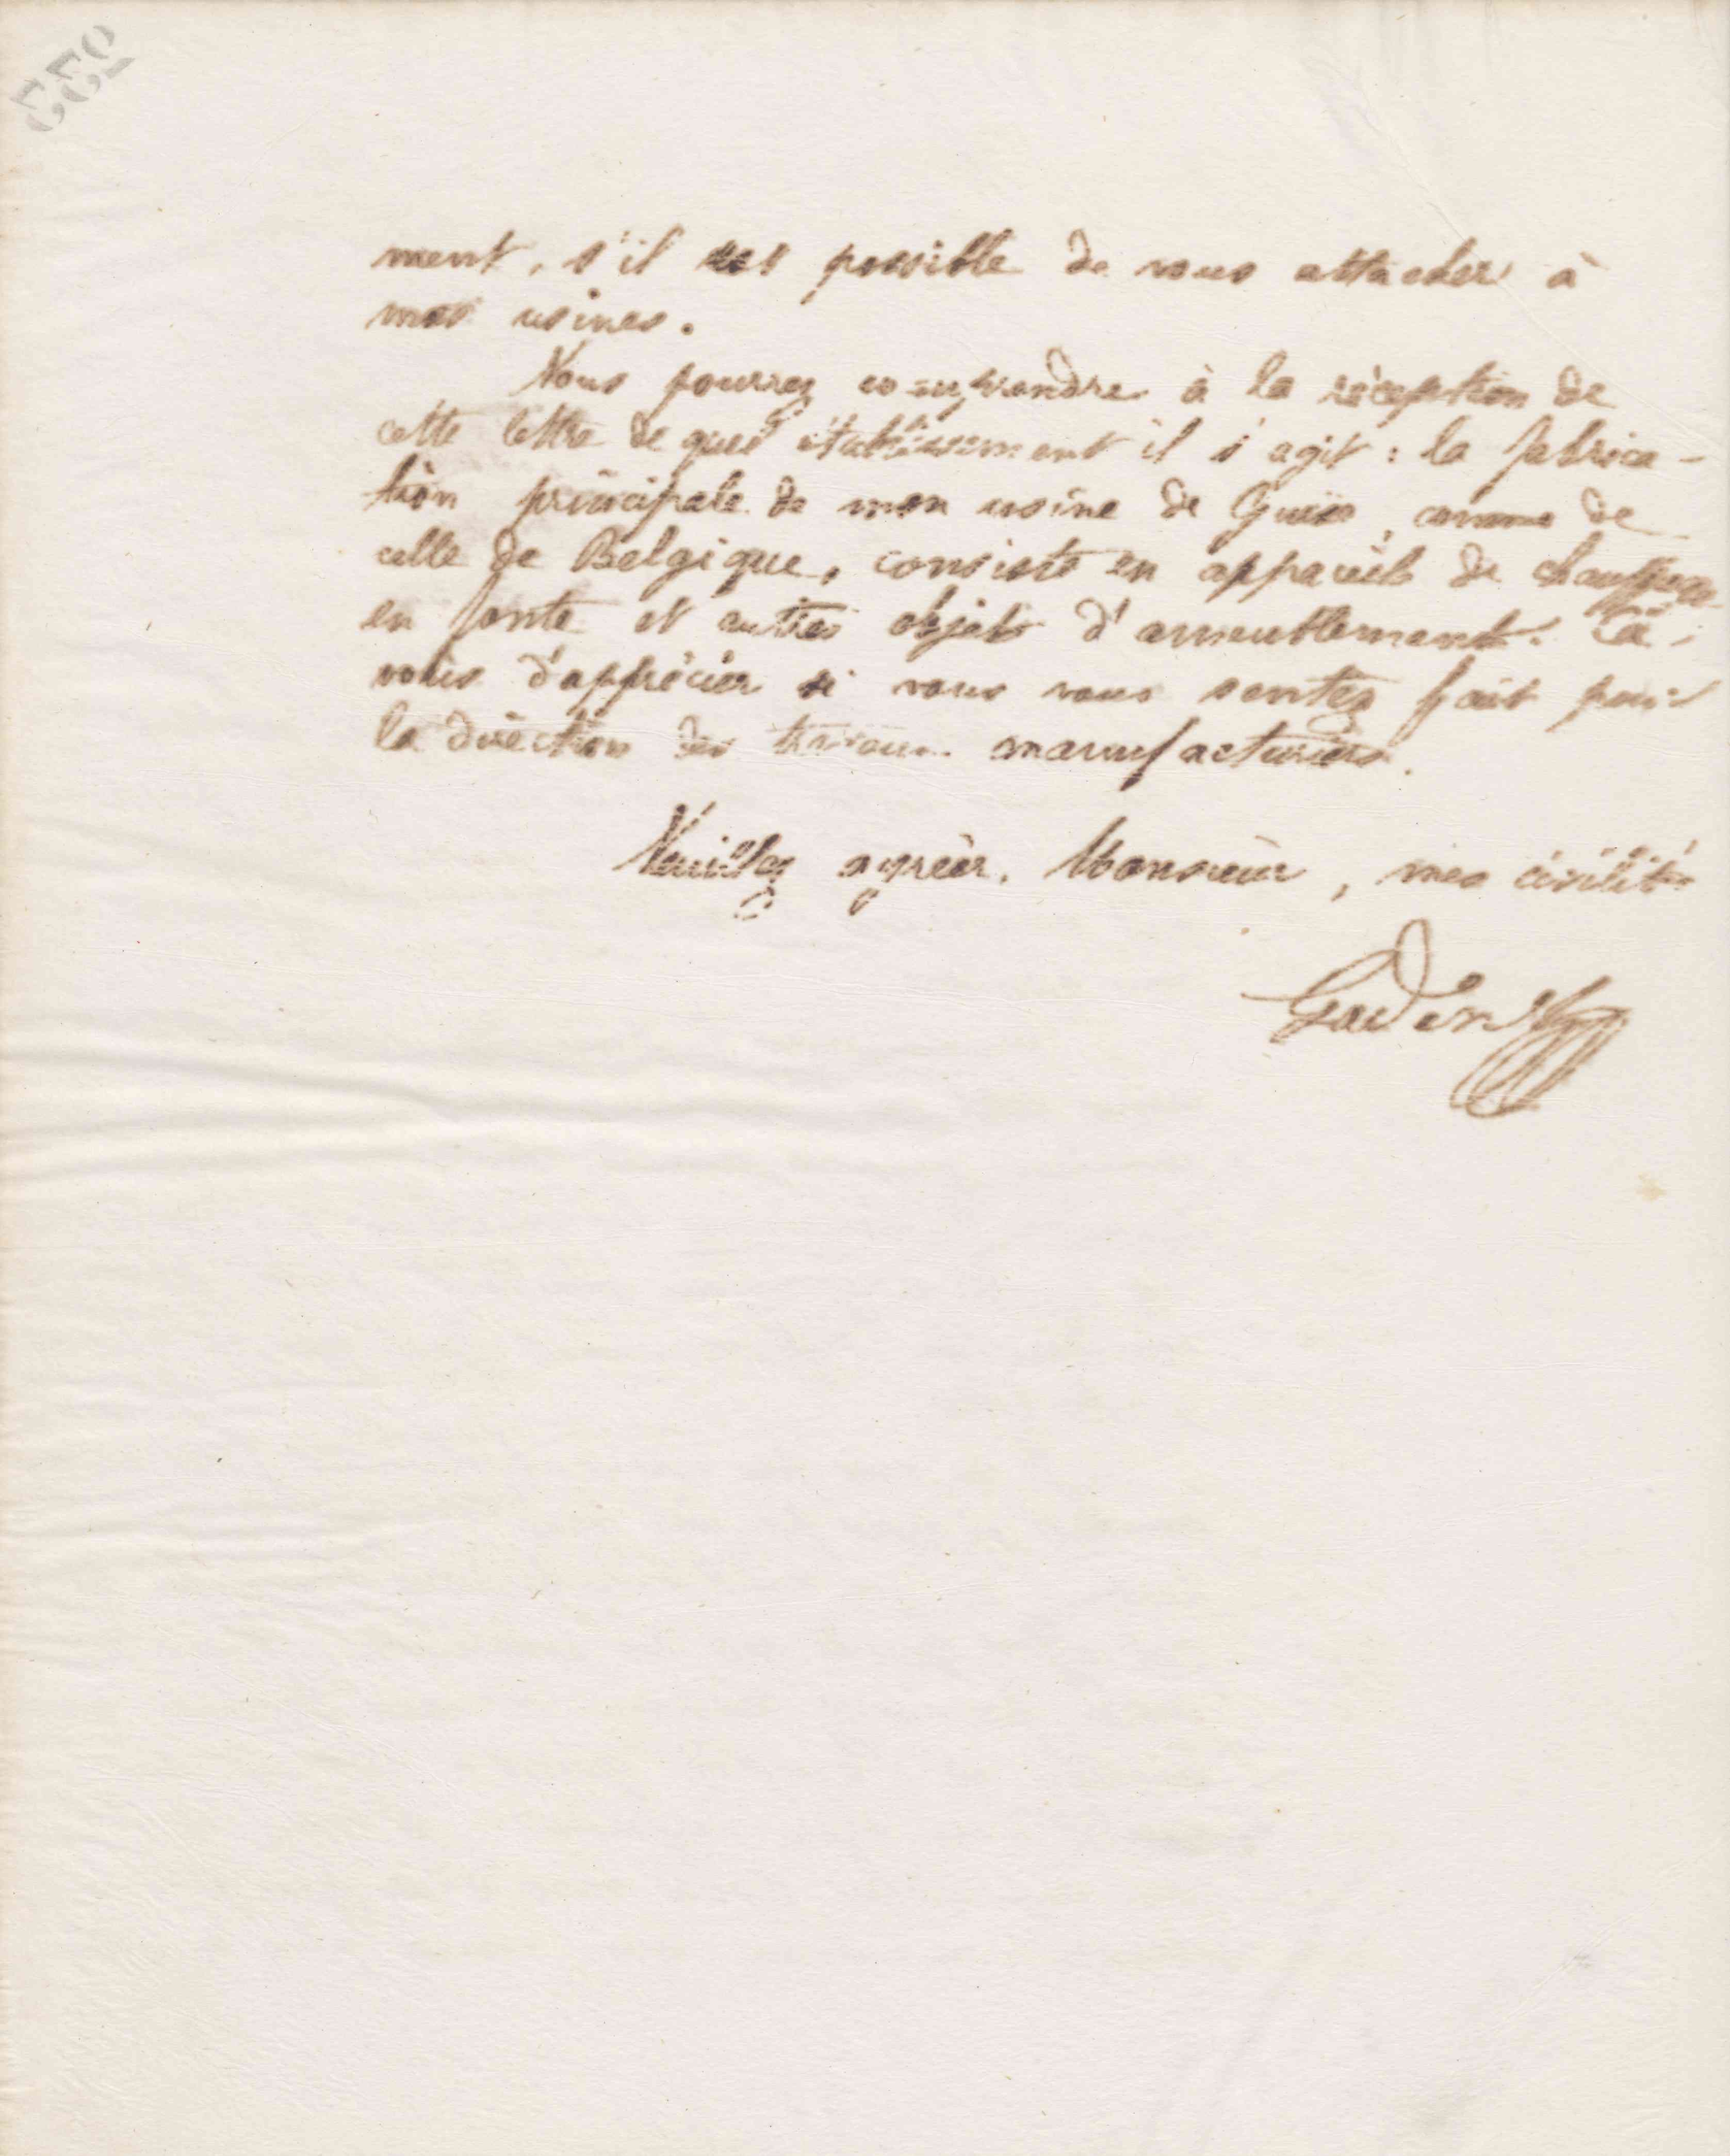 ment, s'il est possible de vous attacher à
mes usines.
Vous pourrez comprendre à la réception de
cette lettre de quel établissement il s'agit : la fabrica-
tion principale de mon usine de Guise, comme de
celle de Belgique, consiste en appareils de chauffage
en fonte et autres objets d'ameublement. à
vous d'apprécier si vous vous sentez fait pour
la direction des travaux manufacturiers.
Veuillez agréer, Monsieur, mes civilités
Godin